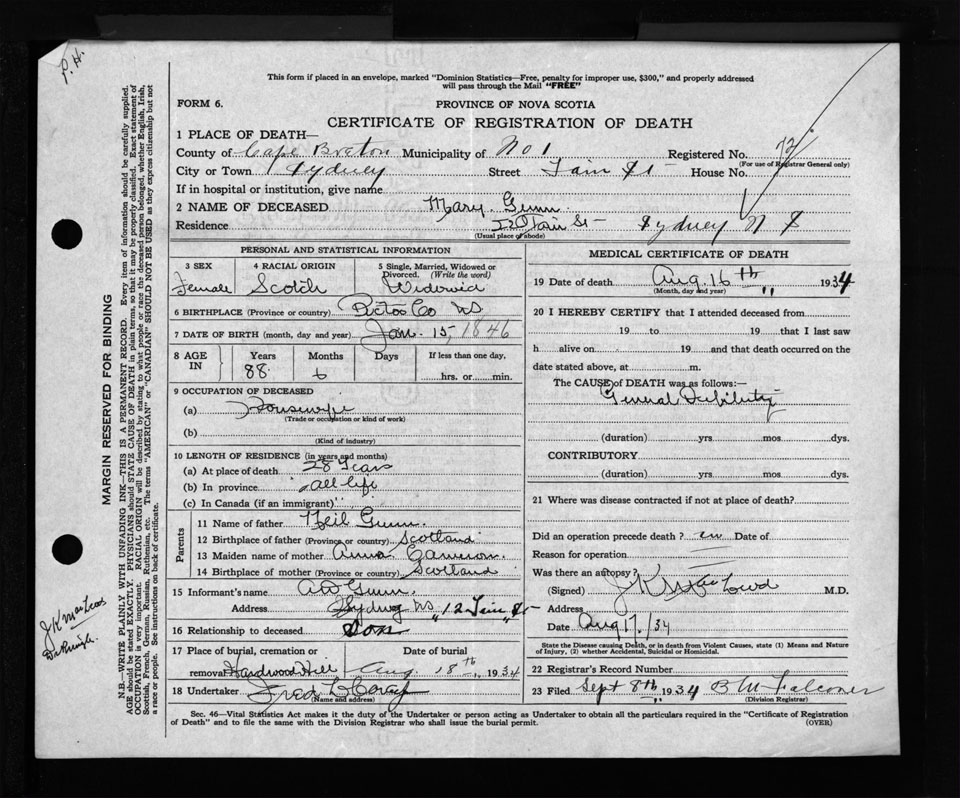 P. H.
This form if placed in an envelope, marked "Dominion Statistics—Free, penalty for improper use, $300," and properly addressed
will pass through the Mail "FREE"
FORM 6. PROVINCE OF NOVA SCOTIA
CERTIFICATE OF REGISTRATION OF DEATH
1 PLACE OF DEATH—
County of Cape Breton Municipality of No 1 Registered No.
(For use of Registrar General only)
City or Town Sydney Street House No.
If in hospital or institution, give name
2 NAME OF DECEASED Mary Gunn
Residence St Sydney N S
(Usual place of abode)
PERSONAL AND STATISTICAL INFORMATION
3 SEX 4 RACIAL ORIGIN 5 Single, Married, Widowed or
Divorced. (Write the word)
Female Scotch
6 BIRTHPLACE (Province or country) Pictou Co NS
7 DATE OF BIRTH (month, day and year) Jan. 15, 1846
8 AGE IN Years Months Days If less than one day,
88 6 hrs. or min.
9 OCCUPATION OF DECEASED
(a) Housewife
(Trade or occupation or kind of work)
(b)
(Kind of industry)
10 LENGTH OF RESIDENCE (in years and months)
(a) At place of death 28 Years
(b) In province all life
(c) In Canada (if an immigrant)
Parents
11 Name of father Neil Gunn
12 Birthplace of father (Province or country) Scotland
13 Maiden name of mother Anna Cameron
14 Birthplace of mother (Province or country) Scotland
15 Informant's name Gunn
Address Sydney NS
16 Relationship to deceased Son
17 Place of burial, cremation or Date of burial
removal Hardwood Hill Aug 18th, 1934
18 Undertaker Fred
(Name and address)
MEDICAL CERTIFICATE OF DEATH
19 Date of death Aug. 16th " 1934
(Month, day and year)
20 I HEREBY CERTIFY that I attended deceased from
19 to 19 that I last saw
h alive on 19 and that death occurred on the
date stated above, at m.
The CAUSE of DEATH was as follows:—
General Debility
(duration) yrs. mos. dys.
CONTRIBUTORY
(duration) yrs. mos. dys.
21 Where was disease contracted if not at place of death?
Did an operation precede death? Date of
Reason for operation
Was there an autopsy?
(Signed) J K M.D.
Address
Date Aug 17/34
State the Disease causing Death, or in death from Violent Causes, state (1) Means and Nature
of Injury, (2) whether Accidental, Suicidal or Homicidal.
22 Registrar's Record Number
23 Filed Sept 8th, 1934 B M Falconer
(Division Registrar)
Sec. 46—Vital Statistics Act makes it the duty of the Undertaker or person acting as Undertaker to obtain all the particulars required in the "Certificate of Registration
of Death" and to file the same with the Division Registrar who shall issue the burial permit. (OVER)
MARGIN RESERVED FOR BINDING
N.B.—WRITE PLAINLY WITH UNFADING INK—THIS IS A PERMANENT RECORD. Every item of information should be carefully supplied.
AGE should be stated EXACTLY. PHYSICIANS should STATE CAUSE OF DEATH in plain terms, so that it may be properly classified. Exact statement of
OCCUPATION is very important. RACIAL ORIGIN will be described by stating to what people or race the deceased person belonged, whether English, Irish,
Scottish, French, German, Russian, Ruthenian, etc. The terms "AMERICAN" or "CANADIAN" SHOULD NOT BE USED as they express citizenship but not
a race or people. See instructions on back of certificate.